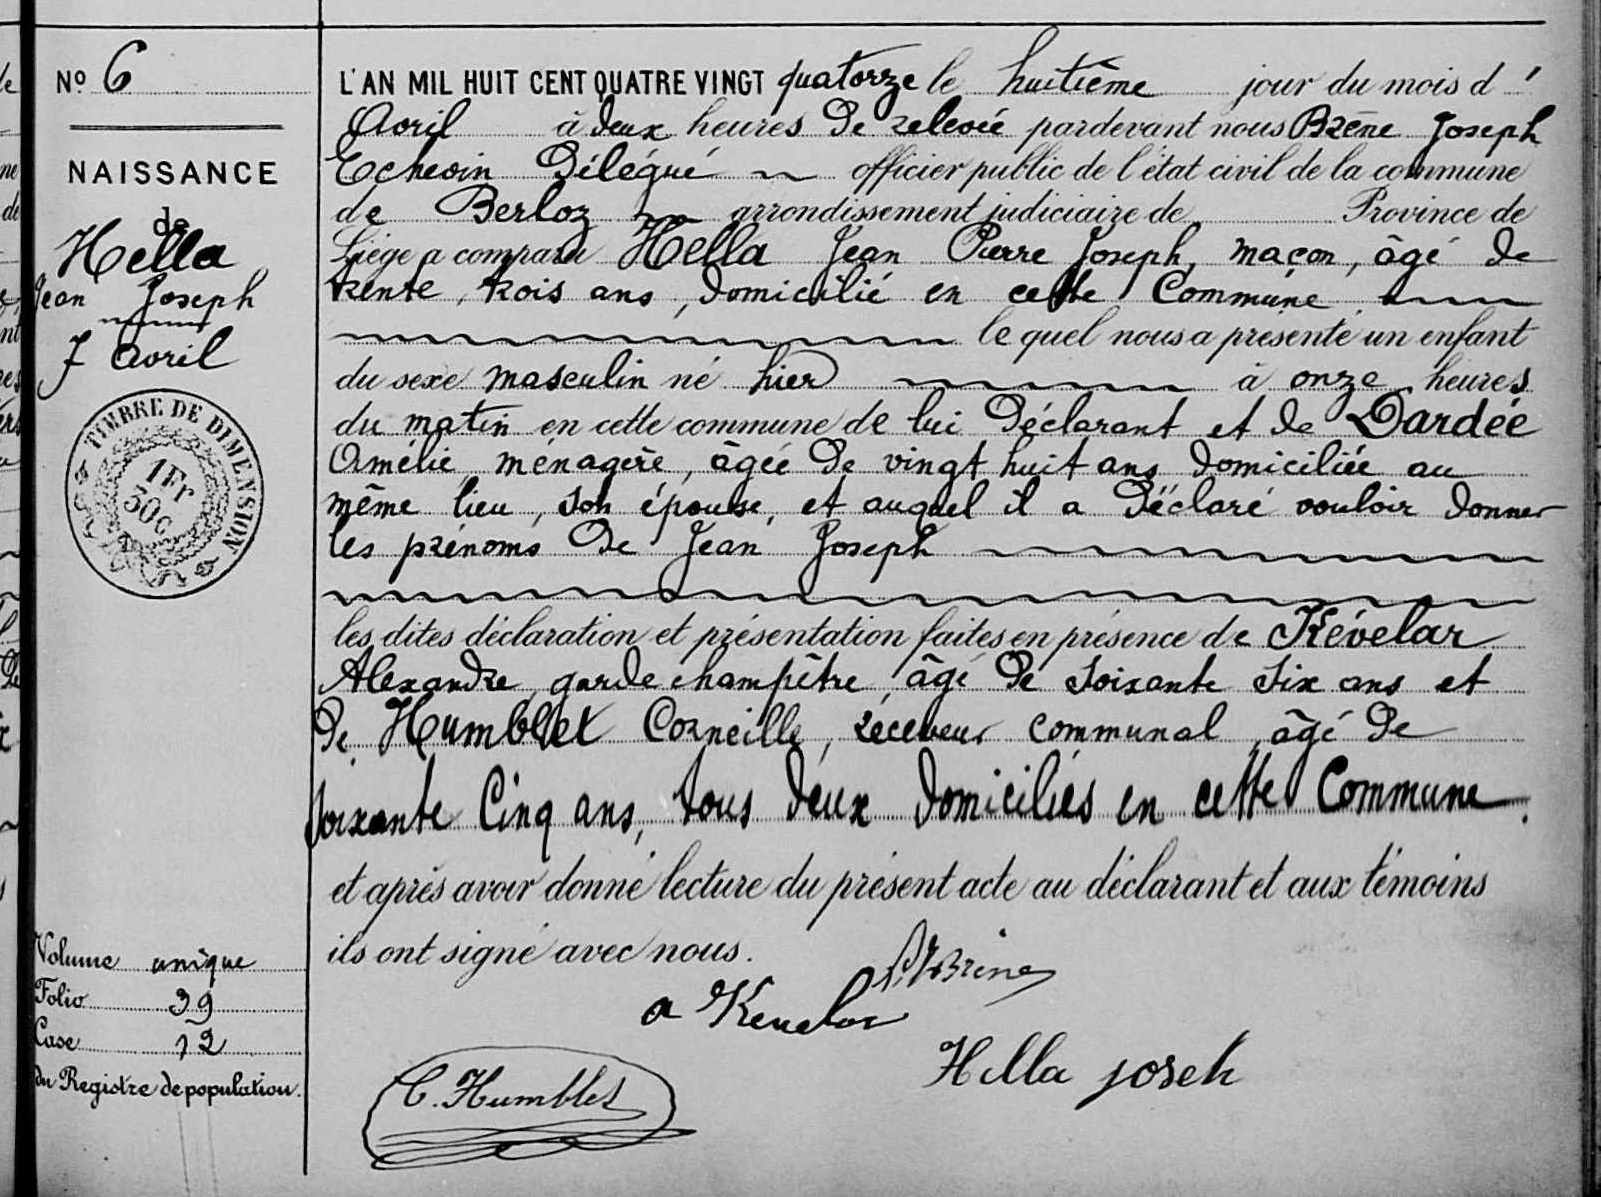 No 6
NAISSANCE
de
Hella
Jean Joseph
7 Avril
TIMBRE DE DIMENSION
1 Fr
50c
Volume unique
Folio 39
Case 12
du Registre de population.
L'AN MIL HUIT CENT QUATRE VINGT quatorze le huitième jour du mois d'
Avril à deux heures de relevée pardevant nous Brène Joseph
Echevin Délégué officier public de l'état civil de la commune
de Berloz arrondissement judiciaire de Province de
Liège a comparu Hella Jean Pierre Joseph, maçon, âgé de
trente trois ans, domicilié en cette Commune
le quel nous a présenté un enfant
du sexe masculin né hier à onze heures
du matin en cette commune de lui Déclarant et de Dardée
Amélie, ménagère, âgée de vingt huit ans domiciliée au
même lieu, son épouse, et auquel il a Déclaré vouloir donner
les prénoms de Jean Joseph
les dites déclaration et présentation faites en présence de Kévelar
Alexandre, garde champêtre, âgé de soixante six ans et
de Humblet Corneille, receveur communal, âgé de
soixante Cinq ans, tous deux domiciliés en cette Commune.
et après avoir donné lecture du présent acte au déclarant et aux témoins
ils ont signé avec nous.
Brène
a Kevelar
Hella joseh
C. Humblet